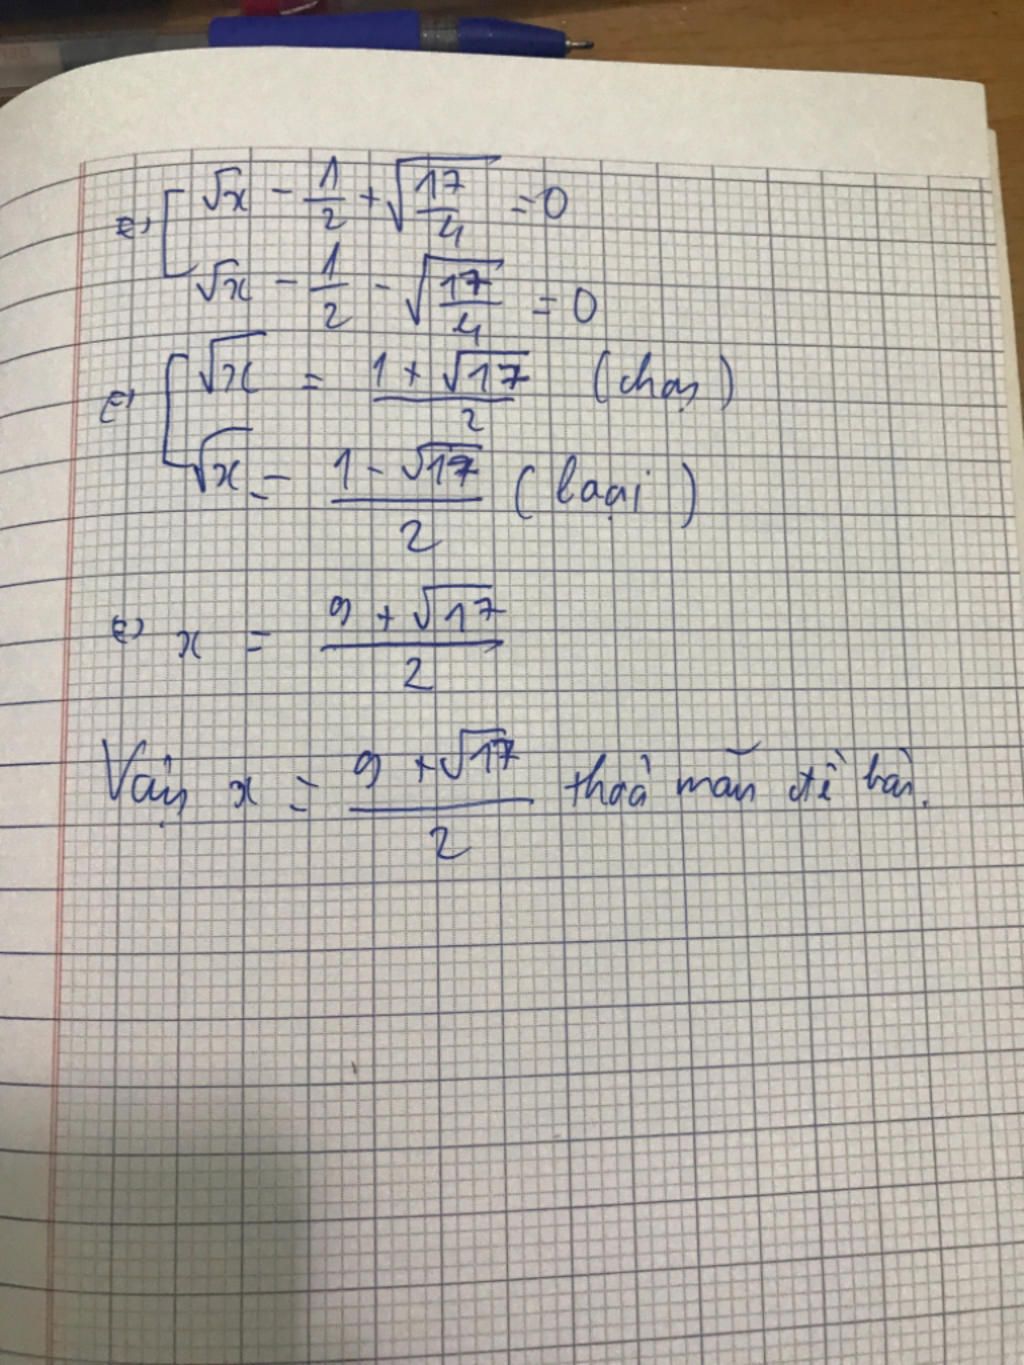 ⇔ [ √x - 1/2 + √(17/4) = 0
√x - 1/2 - √(17/4) = 0
⇔ [ √x = (1 + √17)/2 (chọn)
√x = (1 - √17)/2 (loại)
⇔ x = (9 + √17)/2
Vậy x = (9 + √17)/2 thoả mãn đề bài.